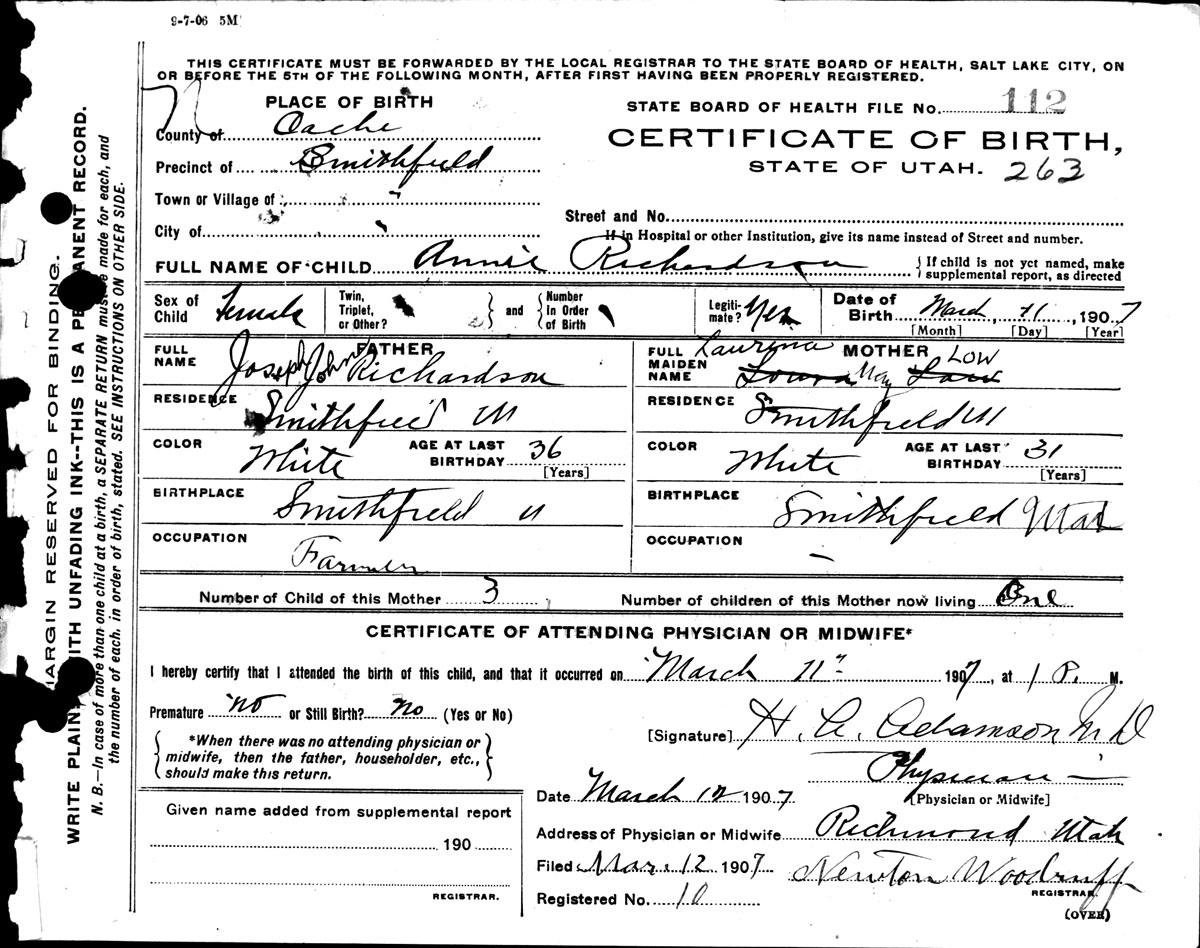 9-7-06 5M
THIS CERTIFICATE MUST BE FORWARDED BY THE LOCAL REGISTRAR TO THE STATE BOARD OF HEALTH, SALT LAKE CITY, ON
OR BEFORE THE 5TH OF THE FOLLOWING MONTH, AFTER FIRST HAVING BEEN PROPERLY REGISTERED.
PLACE OF BIRTH
STATE BOARD OF HEALTH FILE No. 112
County of Cache
CERTIFICATE OF BIRTH,
STATE OF UTAH. 263
Precinct of Smithfield
Town or Village of
Street and No.
City of
If in Hospital or other Institution, give its name instead of Street and number.
FULL NAME OF CHILD Annie Richardson { If child is not yet named, make
supplemental report, as directed
Sex of Child Female
Twin, Triplet, or Other? } and { Number In Order of Birth
Legiti-mate? Yes
Date of Birth March 11, 1907
[Month] [Day] [Year]
FATHER
FULL NAME Joseph John Richardson
RESIDENCE Smithfield
COLOR White
AGE AT LAST BIRTHDAY 36
[Years]
BIRTHPLACE Smithfield u
OCCUPATION
Farmer
MOTHER
FULL MAIDEN NAME Laurina Loura May Low Law
RESIDENCE Smithfield
COLOR White
AGE AT LAST BIRTHDAY 31
[Years]
BIRTHPLACE Smithfield Utah
OCCUPATION –
Number of Child of this Mother 3
Number of children of this Mother now living One
CERTIFICATE OF ATTENDING PHYSICIAN OR MIDWIFE*
I hereby certify that I attended the birth of this child, and that it occurred on March 11" 1907, at 1 P. M.
Premature no or Still Birth? no (Yes or No)
{ *When there was no attending physician or
midwife, then the father, householder, etc.,
should make this return. }
[Signature] H. A. Adamson M D
Physician –
[Physician or Midwife]
Date March 12 1907
Given name added from supplemental report
190
REGISTRAR.
Address of Physician or Midwife Richmond Utah
Filed Mar. 12 1907 Newton Woodruff
REGISTRAR.
Registered No. 10
(OVER)
MARGIN RESERVED FOR BINDING.
WRITE PLAINLY WITH UNFADING INK--THIS IS A PERMANENT RECORD.
N. B.—In case of more than one child at a birth, a SEPARATE RETURN must be made for each, and
the number of each, in order of birth, stated. SEE INSTRUCTIONS ON OTHER SIDE.